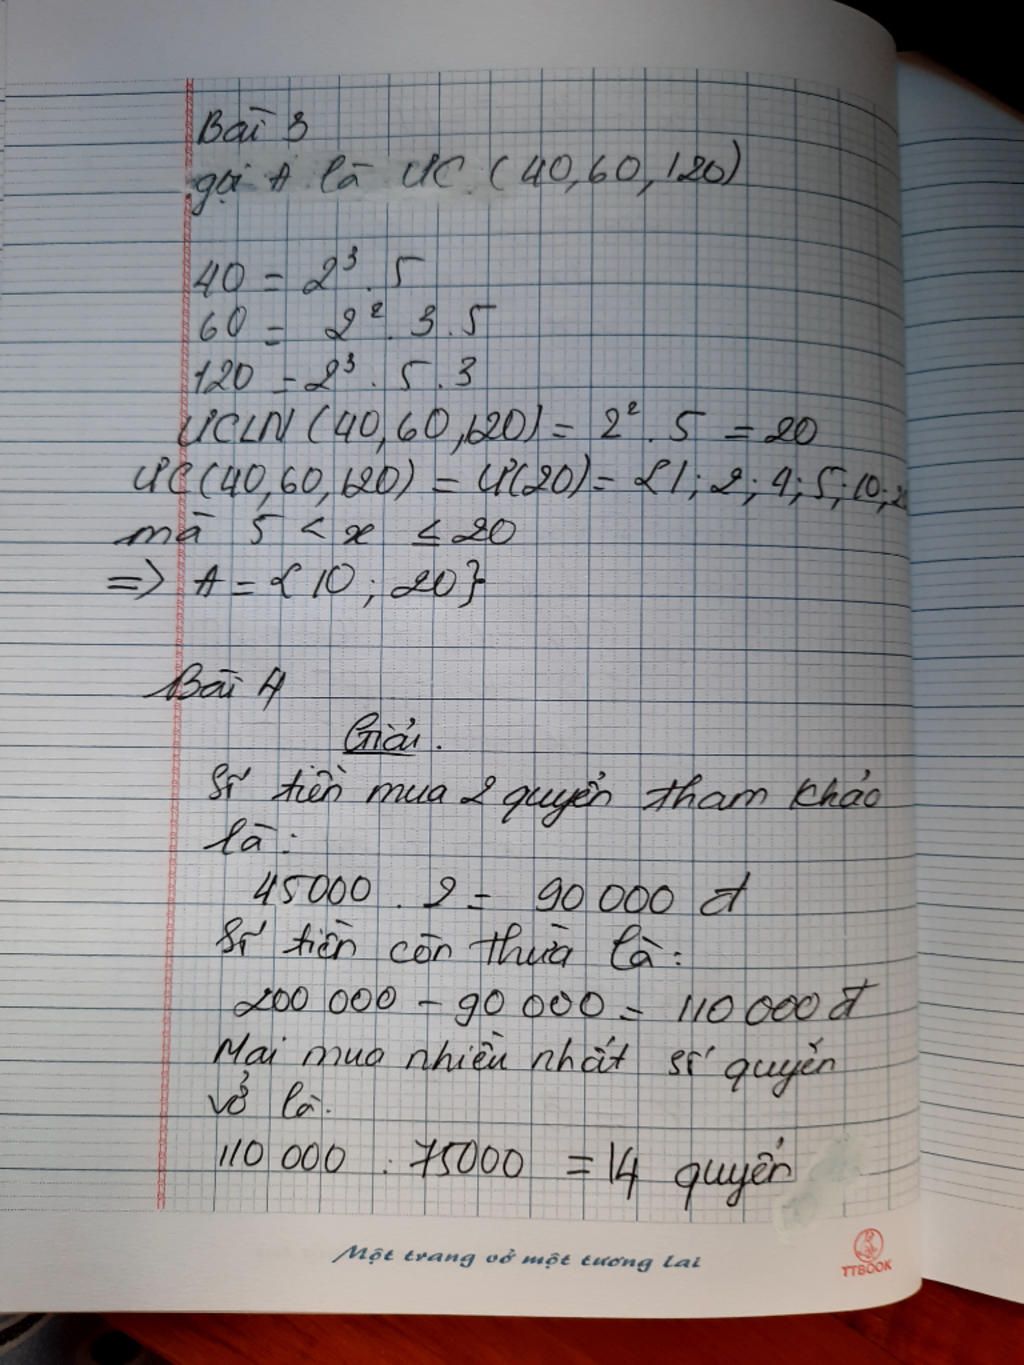 Bài 3
gọi A là ƯC (40,60,120)
40 = 2³ . 5
60 = 2² . 3 . 5
120 = 2³ . 5 . 3
ƯCLN (40,60,120) = 2² . 5 = 20
ƯC (40,60,120) = Ư(20) = {1; 2; 4; 5; 10; 20
mà 5 < x ≤ 20
=> A = {10; 20}
Bài 4
Giải.
Số tiền mua 2 quyển tham khảo
là:
45000 . 2 = 90 000 đ
Số tiền còn thừa là:
200 000 - 90 000 = 110 000 đ
Mai mua nhiều nhất số quyển
vở là.
110 000 : 75000 = 14 quyển
Một trang vở một tương lai
TTBOOK